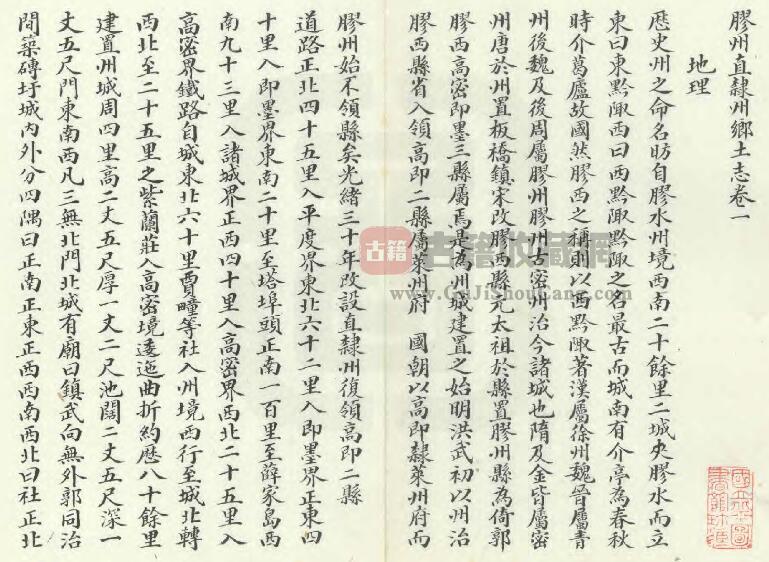 膠州直隸州鄉土志卷一
地理
歷史州之命名昉自膠水州境西南二十餘里二城夾膠水而立
東曰東黔陬西曰西黔陬黔陬之名最古而城南有介亭為春秋
時介葛廬故國然膠西之稱則以西黔陬著漢屬徐州魏晉屬青
州後魏及後周屬膠州膠州古密州治今諸城也隋及金皆屬密
州唐於州置板橋鎮宋改膠西縣元太祖於縣置膠州縣為倚郭
膠西高密即墨三縣屬焉是為州城建置之始明洪武初以州治
膠西縣省入領高即二縣屬萊州府 國朝以高即隸萊州府而
膠州始不領縣矣光緒三十年改設直隸州復領高即二縣
道路正北四十五里入平度界東北六十二里入即墨界正東四
十里入即墨界東南二十里至塔埠頭正南一百里至薛家島西
南九十三里入諸城界正西四十里入高密界西北二十五里入
高密界鐵路自城東北六十里賈疃等社入州境西行至城北轉
西北至二十五里之紫蘭莊入高密境逶迤曲折約歷八十餘里
建置州城周四里高二丈五尺厚一丈二尺池闊二丈五尺深一
丈五尺門東南西凡三無北門北城有廟曰鎮武向無外郭同治
間築磚圩城內外分四隅曰正南正東正西西南西北曰社正北
古籍
古籍收藏網
www.GuJiShouCang.com